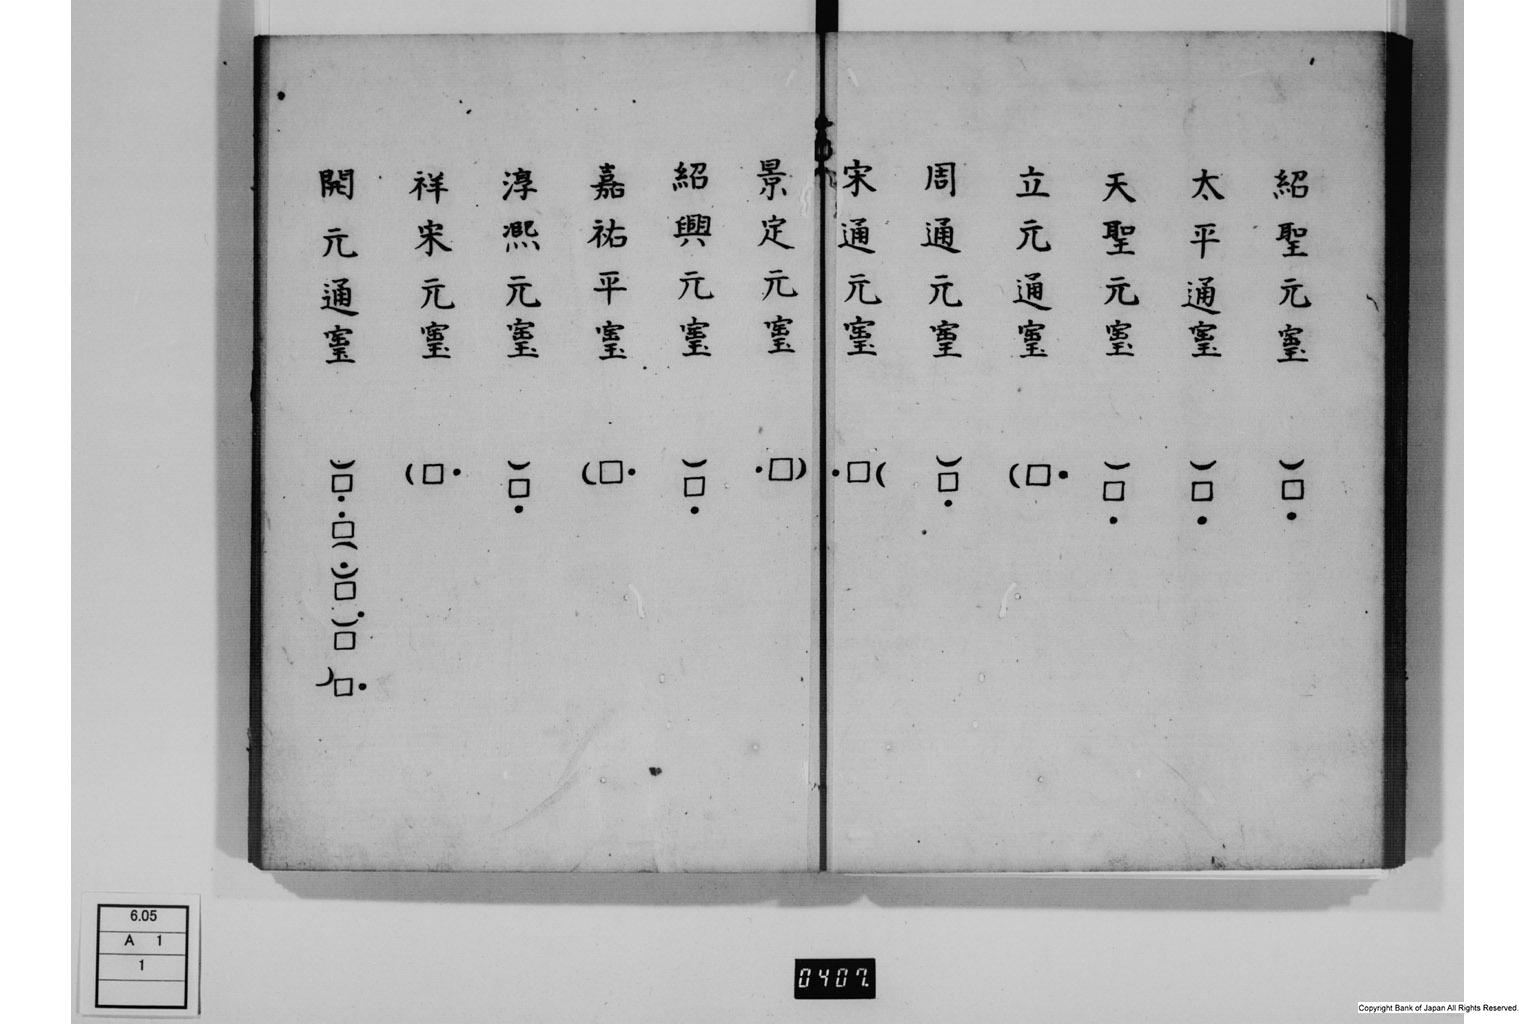 紹聖元寳
太平通寳
天聖元寳
立元通寳
周通元寳
宋通元寳
景定元寳
紹興元寳
嘉祐平寳
淳熈元寳
祥宋元寳
開元通寳
6.05
A 1
1
0407.
Copyright Bank of Japan All Rights Reserved.